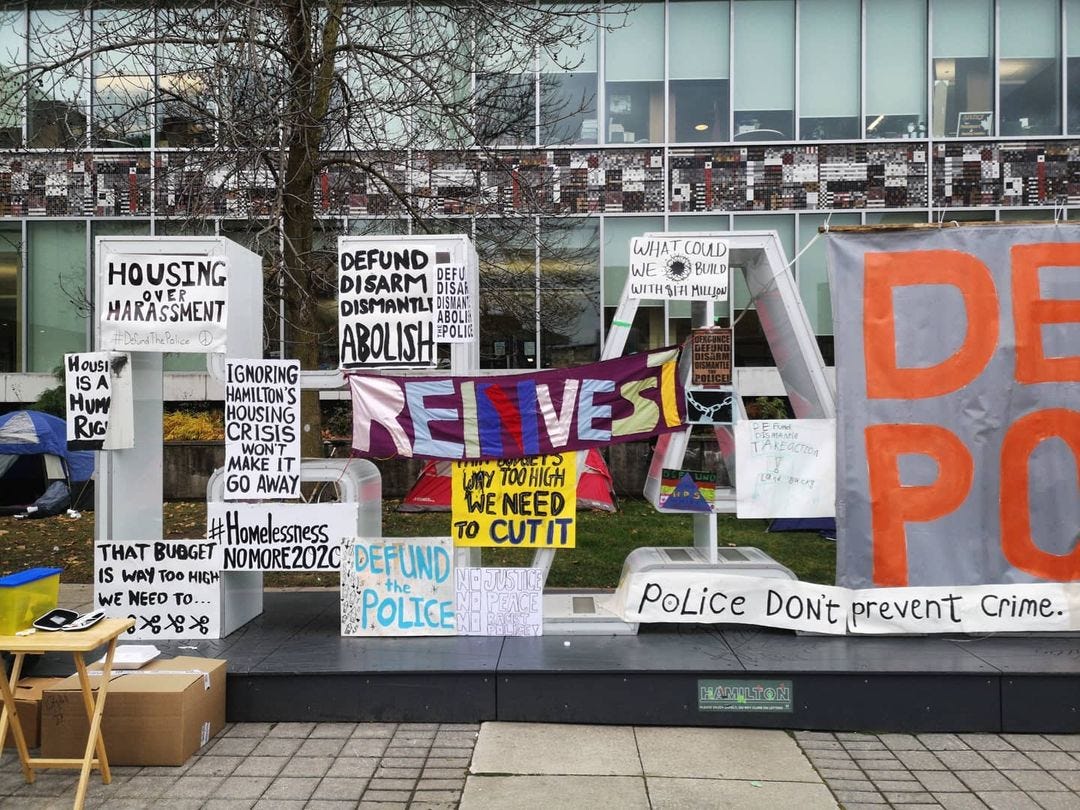 HOUSING
OVER
HARASSMENT
#DefundThePolice
HOUSI
IS A
HUM
RIG
IGNORING
HAMILTON'S
HOUSING
CRISIS
WON'T
MAKE IT
GO AWAY
#HOMELESSNESS
NOMORE2020
THAT BUDGET
IS WAY TOO HIGH
WE NEED TO...
DEFUND
DISARM
DISMANTLE
ABOLISH
DEFU
DISAR
DISMANT
ABOLIS
THE POLICE
REINVEST
WAY TOO HIGH
WE NEED
TO CUT IT
DEFUND
the
POLICE
NO JUSTICE
NO PEACE
NO RACIST
POLICE
WHAT COULD
WE BUILD
WITH $171 MILLION
DEFUND
DISARM
DISMANTLE
THE
POLICE!
DEFUND
HPS
DEFUND
DISMANTLE
TAKE ACTION
LAND BACK
DE
PO
POLICE DON'T prevent Crime.
HAMILTON